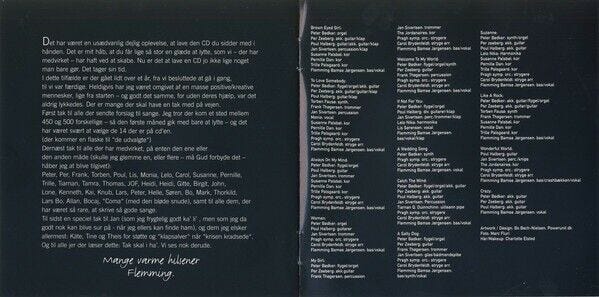 Det har været en usædvanlig dejlig oplevelse, at lave den CD du sidder med i
hånden. Det er mit håb, at du får lige så stor en glæde at lytte, som vi - der har
medvirket - har haft ved at skabe. Nu er det at lave en CD jo ikke lige noget
man bare gør. Det tager sin tid.
I dette tilfælde er der gået lidt over et år, fra vi besluttede at gå i gang,
til vi var færdige. Heldigvis har jeg været omgivet af en masse positive/kreative
mennesker, lige fra starten - og godt det samme, for uden deres hjælp, var det
aldrig lykkedes. Der er mange der skal have en tak med på vejen.
Først tak til alle der sendte forslag til sange. Jeg tror der kom et sted mellem
450 og 500 forskellige - så den første måned gik med bare at lytte - og det
har været svært at vælge de 14 der er på cd'en.
(der kommer en fiskse til "de udvalgte")
Dernæst tak til alle der har medvirket, på enten den ene eller
den anden måde (skulle jeg glemme en, eller flere - må Gud forbyde det -
håber jeg at blive tilgivet):
Peter, Per, Frank, Torben, Poul, Lis, Monia, Lelo, Carol, Susanne, Pernille,
Trille, Tiarnan, Tarma, Thomas, JOF, Heidi, Heidi, Gitte, Birgit, John,
Lone, Kenneth, Kai, Knub, Lars, Peter, Helle, Søren, Bo, Mark, Thorkild,
Lars Bo, Allan, Bocaj, "Coma" (med den bløde snude), samt til alle dem, der
har været så rare, at skrive så gode sange.
Til sidst en speciel tak til Jan (som jeg frygtelig godt ka' li' , men som jeg da
godt nok kan blive sur på - når jeg ellers kan finde ham), og dem jeg elsker
allermest: Käte, Tine og Theis for støtte og "klapsalver" når "krisen kradsede".
Og til alle jer der læser dette: Tak skal i ha'. Vi ses nok derude.
Mange varme hilsener
Flemming.
Brown Eyed Girl
Peter Bødker: orgel
Per Zeeberg: akk. guitar/klap
Poul Halberg: guitar/akk. guitar/klap
Jan Sivertsen: percussion/klap
Susanne Palsbøl: kor
Pernille Dan: kor
Trille Palsgaard: kor
Flemming Bamse Jørgensen: bas/vokal
To Love Somebody
Peter Bødker: flygel/orgel
Per Zeeberg: akk. guitar
Poul Halberg: guitar
Torben Fausø: synth
Frank Thøgersen: percussion
Jan Sivertsen: percussion
Monia: vocal
Susanne Palsbøl: kor
Pernille Dan: kor
Trille Palsgaard: kor
Pragh symp. orc.: strygere
Carol Brydenfeldt: strygere arr.
Flemming Bamse Jørgensen: bas/vokal
Always On My Mind
Peter Bødker: flygel/orgel/akk. guitar
Per Zeeberg: akk. guitar
Poul Halberg: guitar
Jan Sivertsen: trommer
Susanne Palsbøl: kor
Pernille Dan: kor
Trille Palsgaard: kor
Pragh symp. orc.: strygere
Carol Brydenfeldt: strygere arr.
Flemming Bamse Jørgensen: bas/vokal
Woman
Peter Bødker: orgel
Poul Halberg: guitar
Jan Sivertsen: trommer
Susanne Palsbøl: kor
Pernille Dan: kor
Trille Palsgaard: kor
Pragh symp. orc.: strygere
Carol Brydenfeldt: strygere arr.
Flemming Bamse Jørgensen: bas/vokal
My Girl
Peter Bødker: flygel/orgel
Per Zeeberg: akk. guitar
Frank Thøgersen: percussion
Jan Sivertsen: trommer
The Jordanaires: kor
Pragh symp. orc.: strygere
Carol Brydenfeldt: strygere arr.
Flemming Bamse Jørgensen: bas/vokal
Welcome To My World
Peter Bødker: flygel/synth
Per Zeeberg: akk. guitar
Frank Thøgersen: percussion
Jan Sivertsen: trommer
The Jordanaires: kor
Lelo Nika: harmonika
Flemming Bamse Jørgensen: bas/vokal
If Not For You
Peter Bødker: flygel/orgel
Poul Halberg: guitar
Jan Sivertsen: trommer
Lelo Nika: harmonika
Lis Sørensen: vokal
Flemming Bamse Jørgensen: bas/vokal
A Wedding Song
Peter Bødker: synth
Per Zeeberg: akk. guitar
Pragh symp. orc.: strygere
Carol Brydenfeldt: strygere arr.
Flemming Bamse Jørgensen: bas/vokal
Catch The Wind
Peter Bødker: flygel/orgel/akk. guitar
Per Zeeberg: akk. guitar
Jan Sivertsen: percussion
Tiarnan O. Duinnchinn: uilleann pipe
Pragh symp. orc.: strygere
Carol Brydenfeldt: strygere arr.
Flemming Bamse Jørgensen: bas/vokal
A Salty Dog
Jan Sivertsen: glas/bådmandspibe
Pragh symp. orc.: strygere
Carol Brydenfeldt: strygere arr.
Flemming Bamse Jørgensen:
bas/synth/vokal
Suzanne
Peter Bødker: synth
Per Zeeberg: akk. guitar
Poul Halberg: akk. guitar
Lelo Nika: harmonika
Susanne Palsbøl: kor
Pernille Dan: kor
Trille Palsgaard: kor
Pragh symp. orc.: strygere
Carol Brydenfeldt: strygere arr.
Flemming Bamse Jørgensen: bas/vokal
Like A Rock
Peter Bødker: flygel/orgel
Per Zeeberg: akk. guitar
Torben Fausø: synth
Frank Thøgersen: percussion
Susanne Palsbøl: kor
Pernille Dan: kor
Trille Palsgaard: kor
Flemming Bamse Jørgensen: bas/vokal
Wonderful World
Poul Halberg: guitar
Jan Sivertsen: perc./knips
The Jordanaires: kor
Pragh symp. orc.: strygere
Carol Brydenfeldt: strygere arr.
Flemming Bamse Jørgensen: bas/crashbækken/vokal
Crazy
Peter Bødker: flygel
Poul Halberg: guitar
Flemming Bamse Jørgensen: bas/vokal
Artwork / Design: Bo Bech-Nielsen, Powerunit.dk
Foto: Marc Fluri
Hår/Makeup: Charlotte Elsted